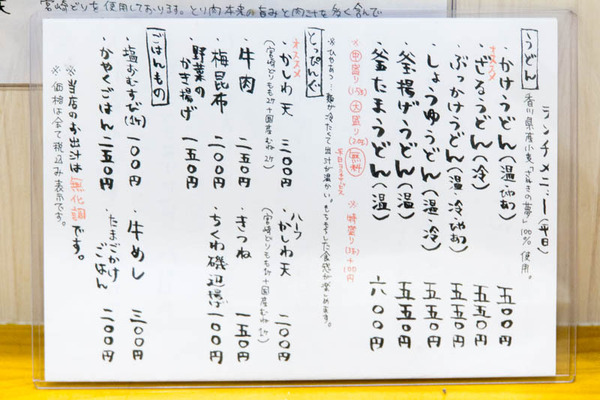 宮崎どりを使用しております。とり肉本来の旨みと肉汁を多く含んで
ランチメニュー(平日)
うどん
香川県産小麦「さぬきの夢」100%使用。
・かけうどん(温・ひやあつ) 五00円
オススメ
・ざるうどん(冷) 五五0円
・ぶっかけうどん(温・冷・ひやあつ) 五五0円
・しょうゆうどん(温・冷) 五五0円
・釜揚げうどん(温) 五五0円
・釜たまうどん(温) 六00円
※中盛り(1.5玉) 大盛り(2玉) 無料
※特盛り(3玉)+100円
※ひやあつ…麺が冷たくて出汁が温かい。もちもちした食感が楽しめます。
とっぴんぐ
オススメ
・かしわ天 三00円
(宮崎どりもも2ケ+国産むね2ケ)
・ハーフかしわ天 二00円
・牛肉 二五0円
・きつね 一五0円
・梅昆布 一00円
・ちくわ磯辺揚げ 一00円
・野菜のかき揚げ 一五0円
ごはんもの
・塩おむすび 一00円
・牛めし 三00円
・かやくごはん 二五0円
・たまごかけごはん 二00円
※当店のお出汁は無化調です。
※価格は全て税込み表示です。